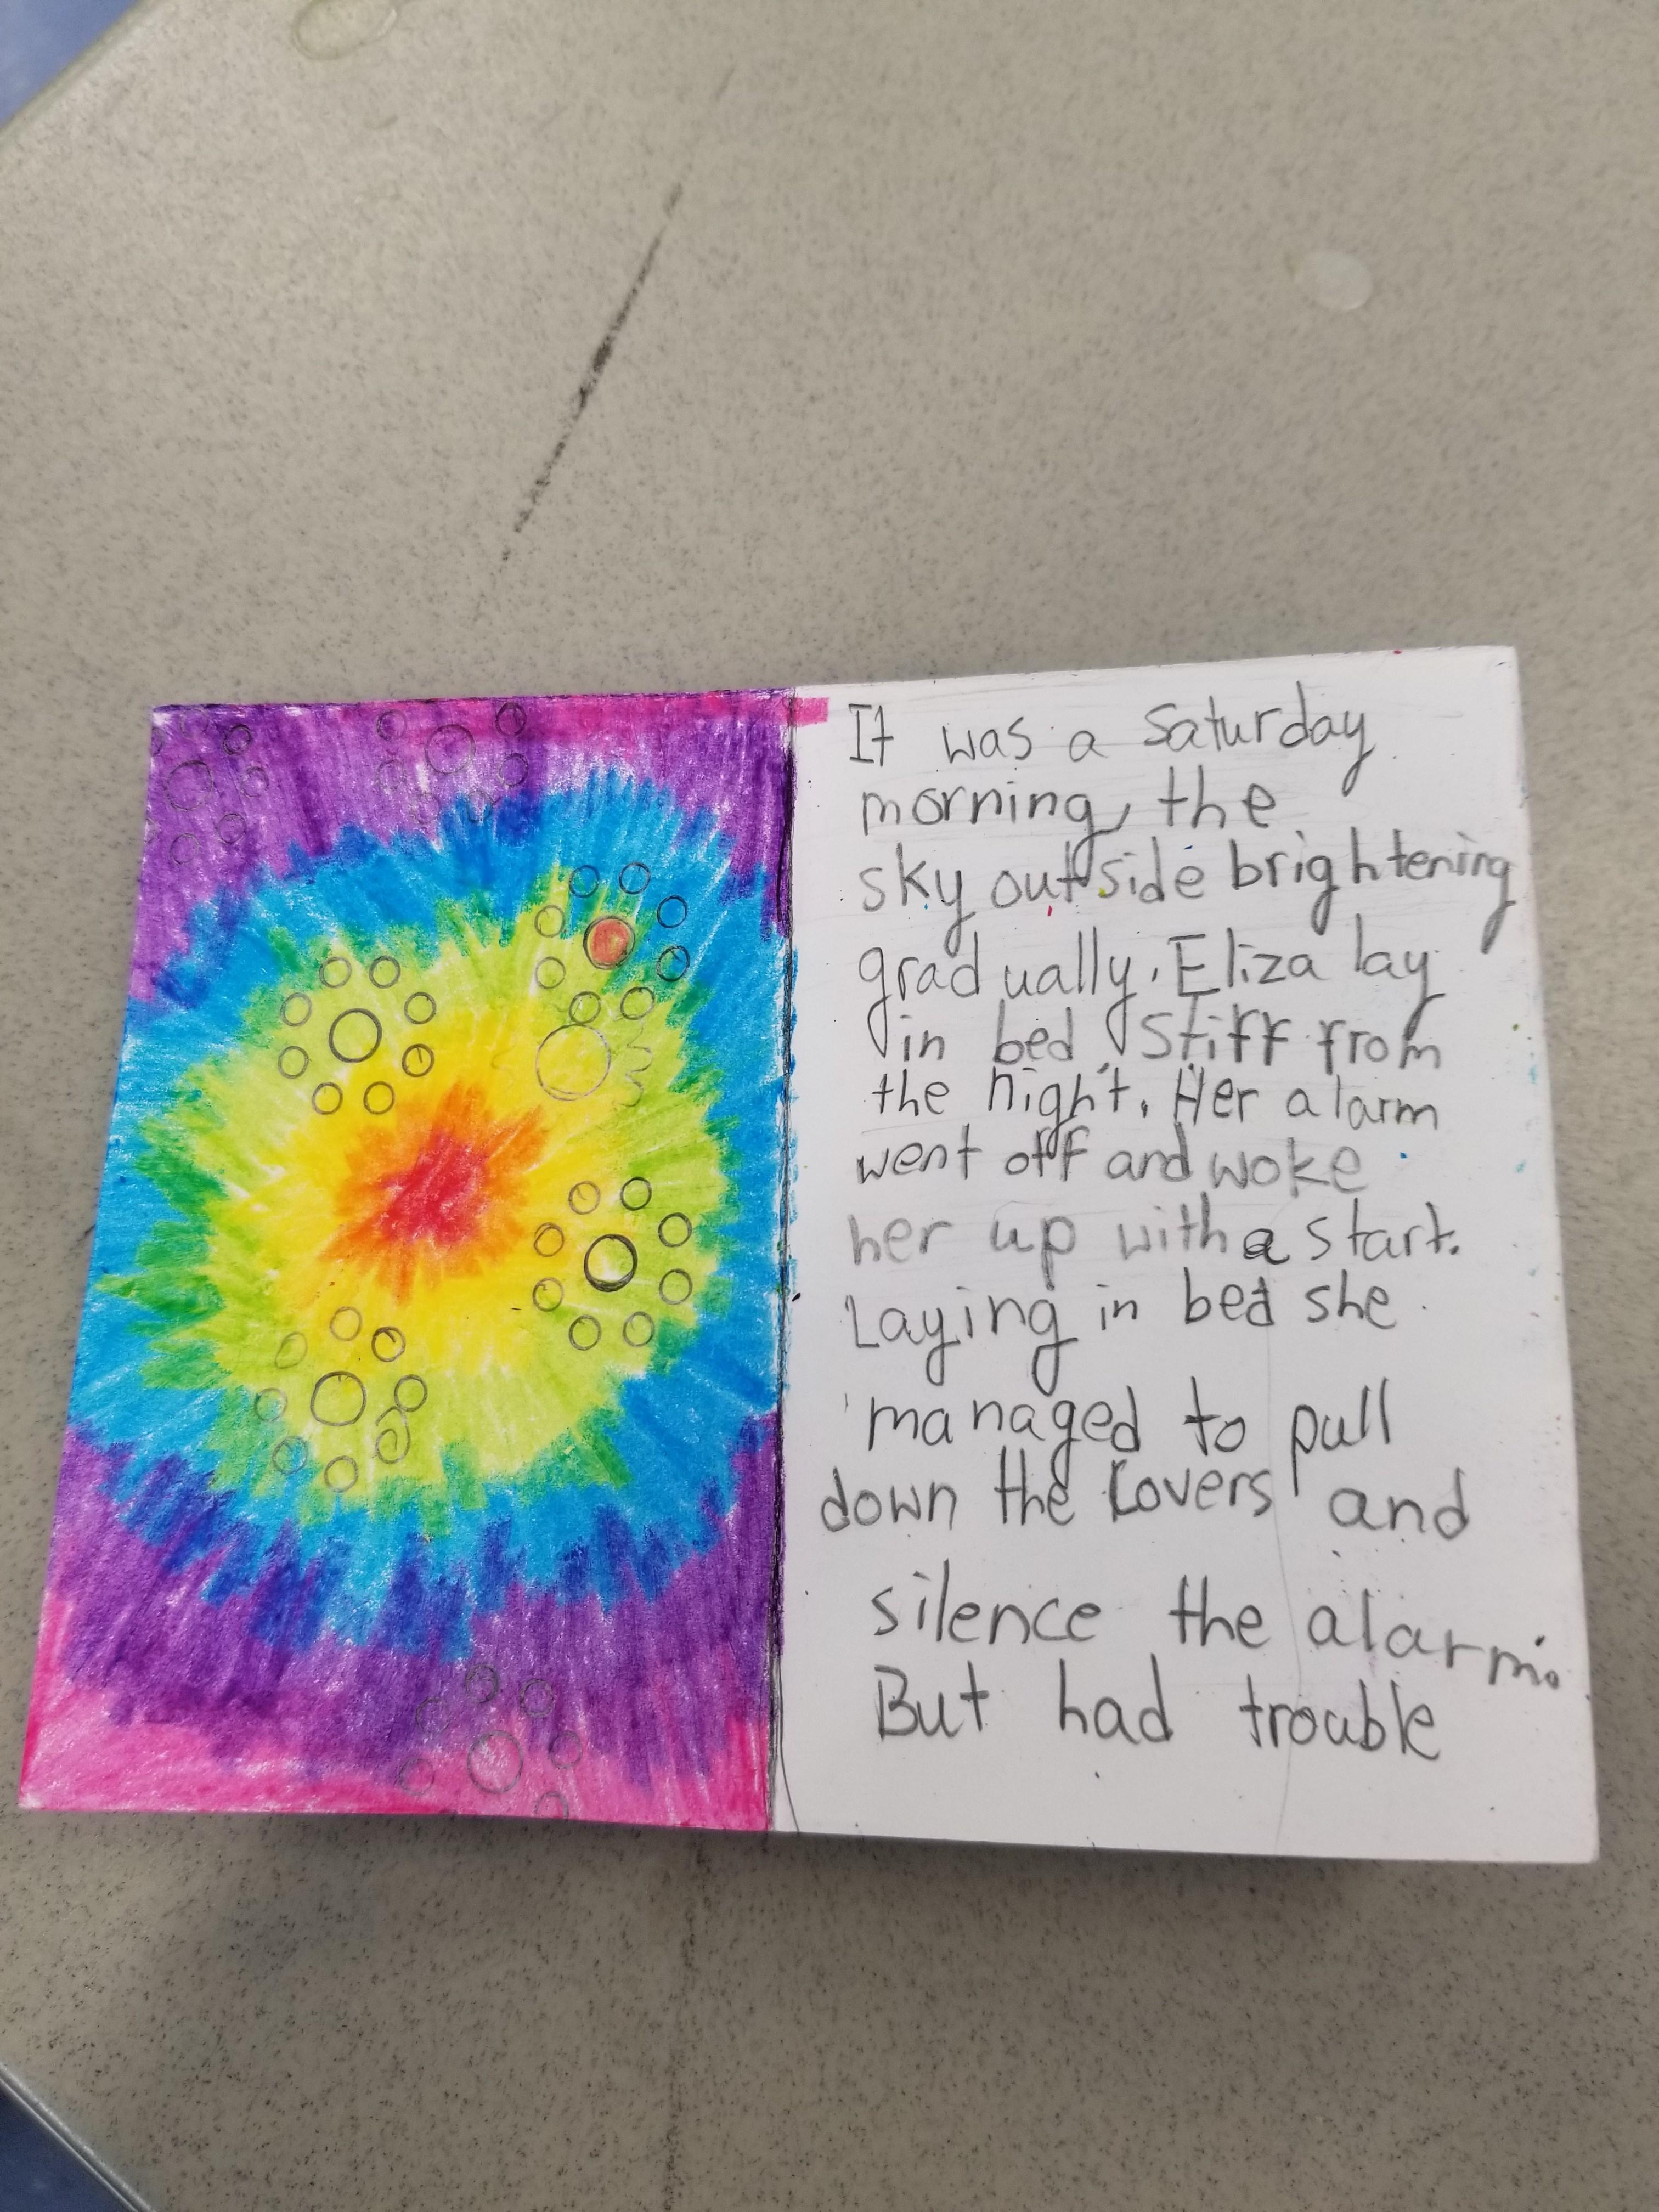 It was a Saturday
morning, the
sky outside brightening
gradually. Eliza lay
in bed, Stiff from
the night. Her alarm
went off and woke
her up with a start.
Laying in bed she
managed to pull
down the Covers and
silence the alarm.
But had trouble